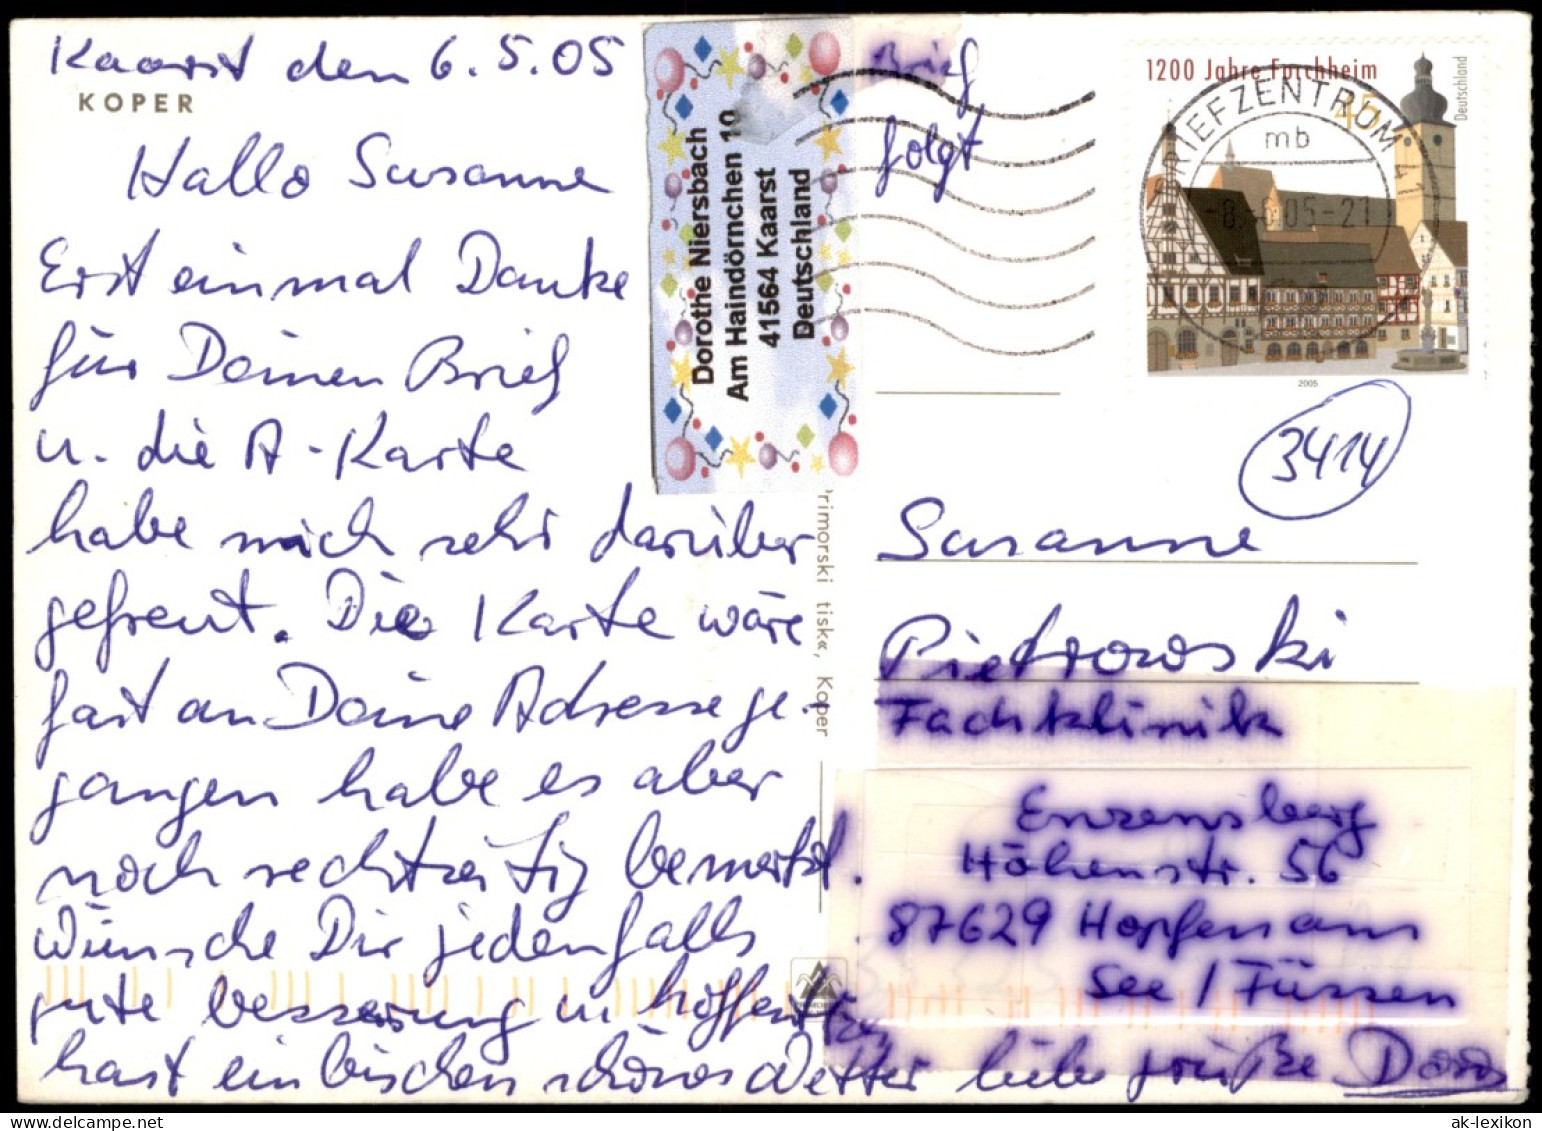 Kaarst den 6.5.05
KOPER
Hallo Susanne
Erst einmal Danke
für Deinen Brief
u. die A-Karte
habe mich sehr darüber
gefreut. Die Karte wäre
fast an Deine Adresse ge-
gangen habe es aber
noch rechtzeitig bemerkt.
Wünsche Dir jedenfalls
gute besserung u hoffentlich
hast ein bischen schönes Wetter liebe grüße Doro
Dorothe Niersbach
Am Haindörnchen 10
41564 Kaarst
Deutschland
rimorski tisk«, Koper
Brief
folgt
1200 Jahre Forchheim
45
Deutschland
2005
BRIEFZENTRUM 41
mb
-8.-6.05-21
3414
Susanne
Pietrowski
Fachklinik
Enzensberg
Höhenstr. 56
87629 Hopfen am
See / Füssen
ak-lexikon.com